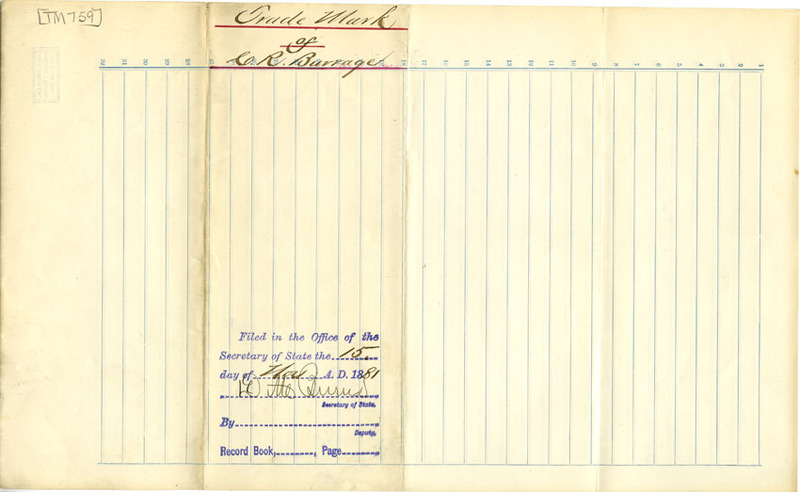 [TM 759]
Trade Mark
of
C. R. Barrage
22 21 20 19 18 17 16 15 14 13 12 11 10 9 8 7 6 5 4 3 2 1
Filed in the Office of the
Secretary of State the 15
day of Nov A. D. 1881
Secretary of State.
By
Deputy.
Record Book, , Page